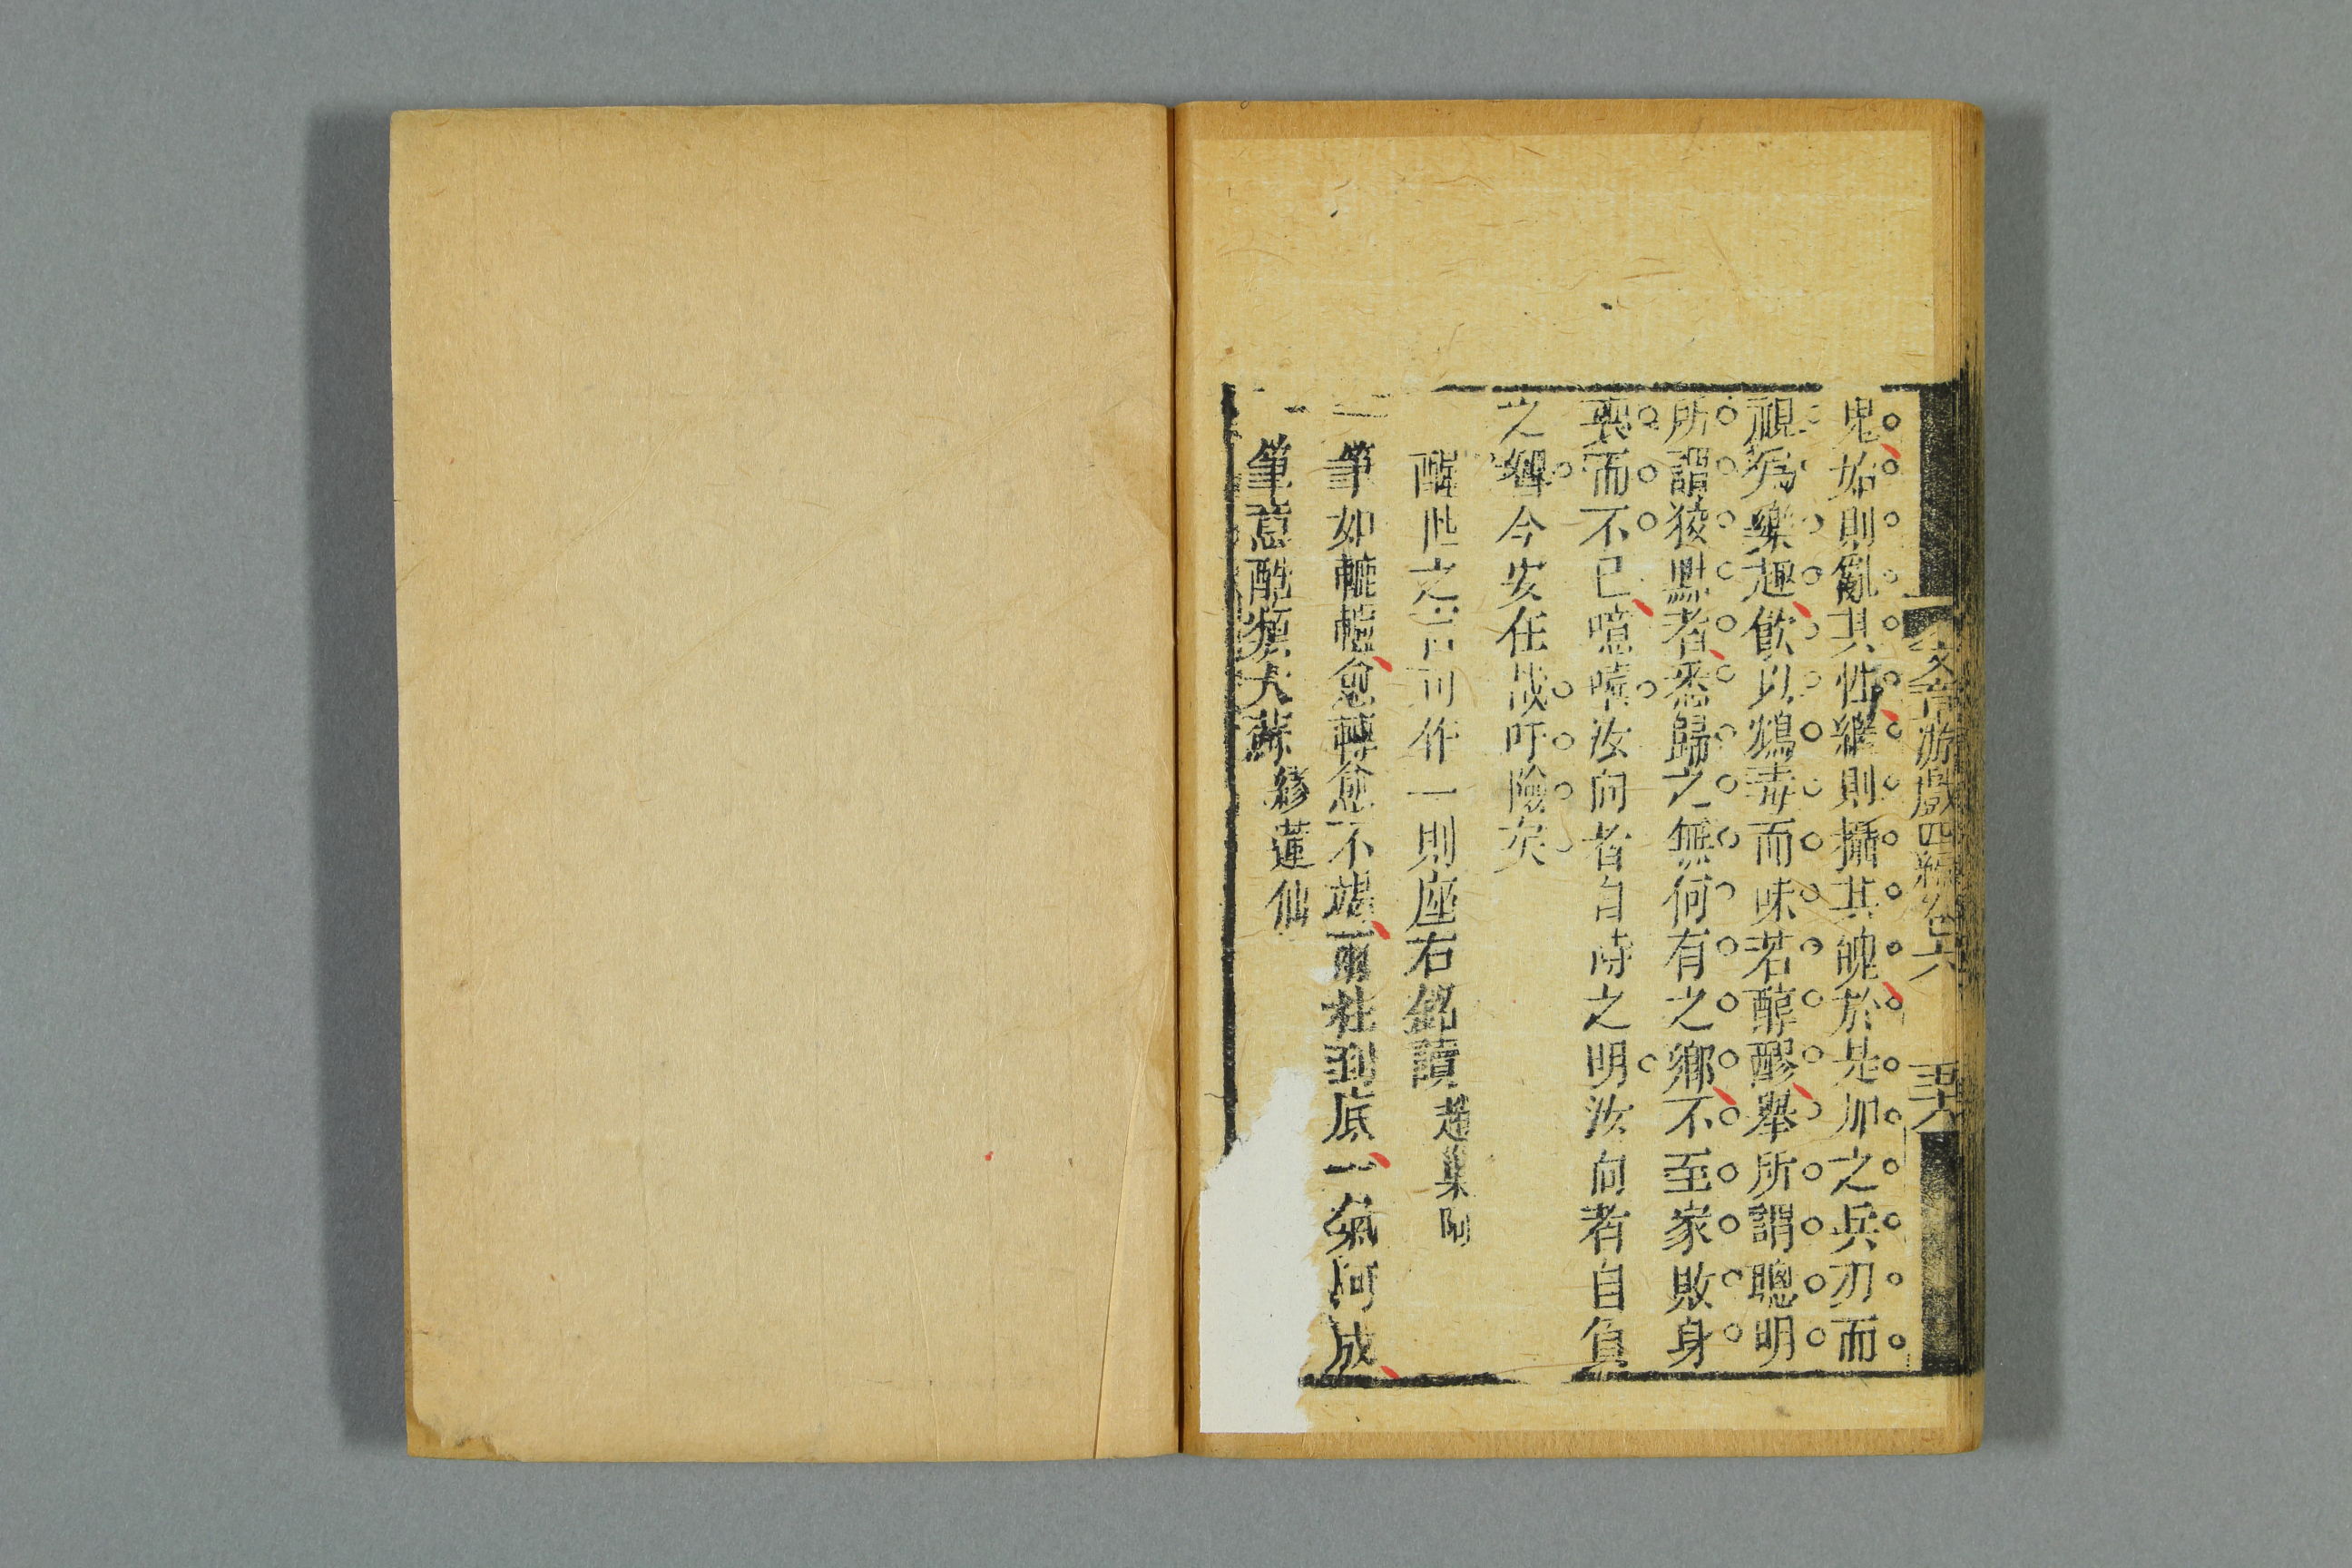 文章游戲四編卷六
鬼始則亂其性繼則攝其魄於是加之兵刃而
視爲樂趣飲以鴆毒而味若醇醪舉所謂聰明
所謂狡黠者悉歸之無何有之鄉不至家敗身
喪而不已噫嘻汝向者自恃之明汝向者自負
之
今安在哉吁險矣
醒世之言可作一則座右銘讀 趙巢阿
筆如轆轤愈轉愈不竭
到底一氣呵成
筆意酷類大蘇 繆蓮仙